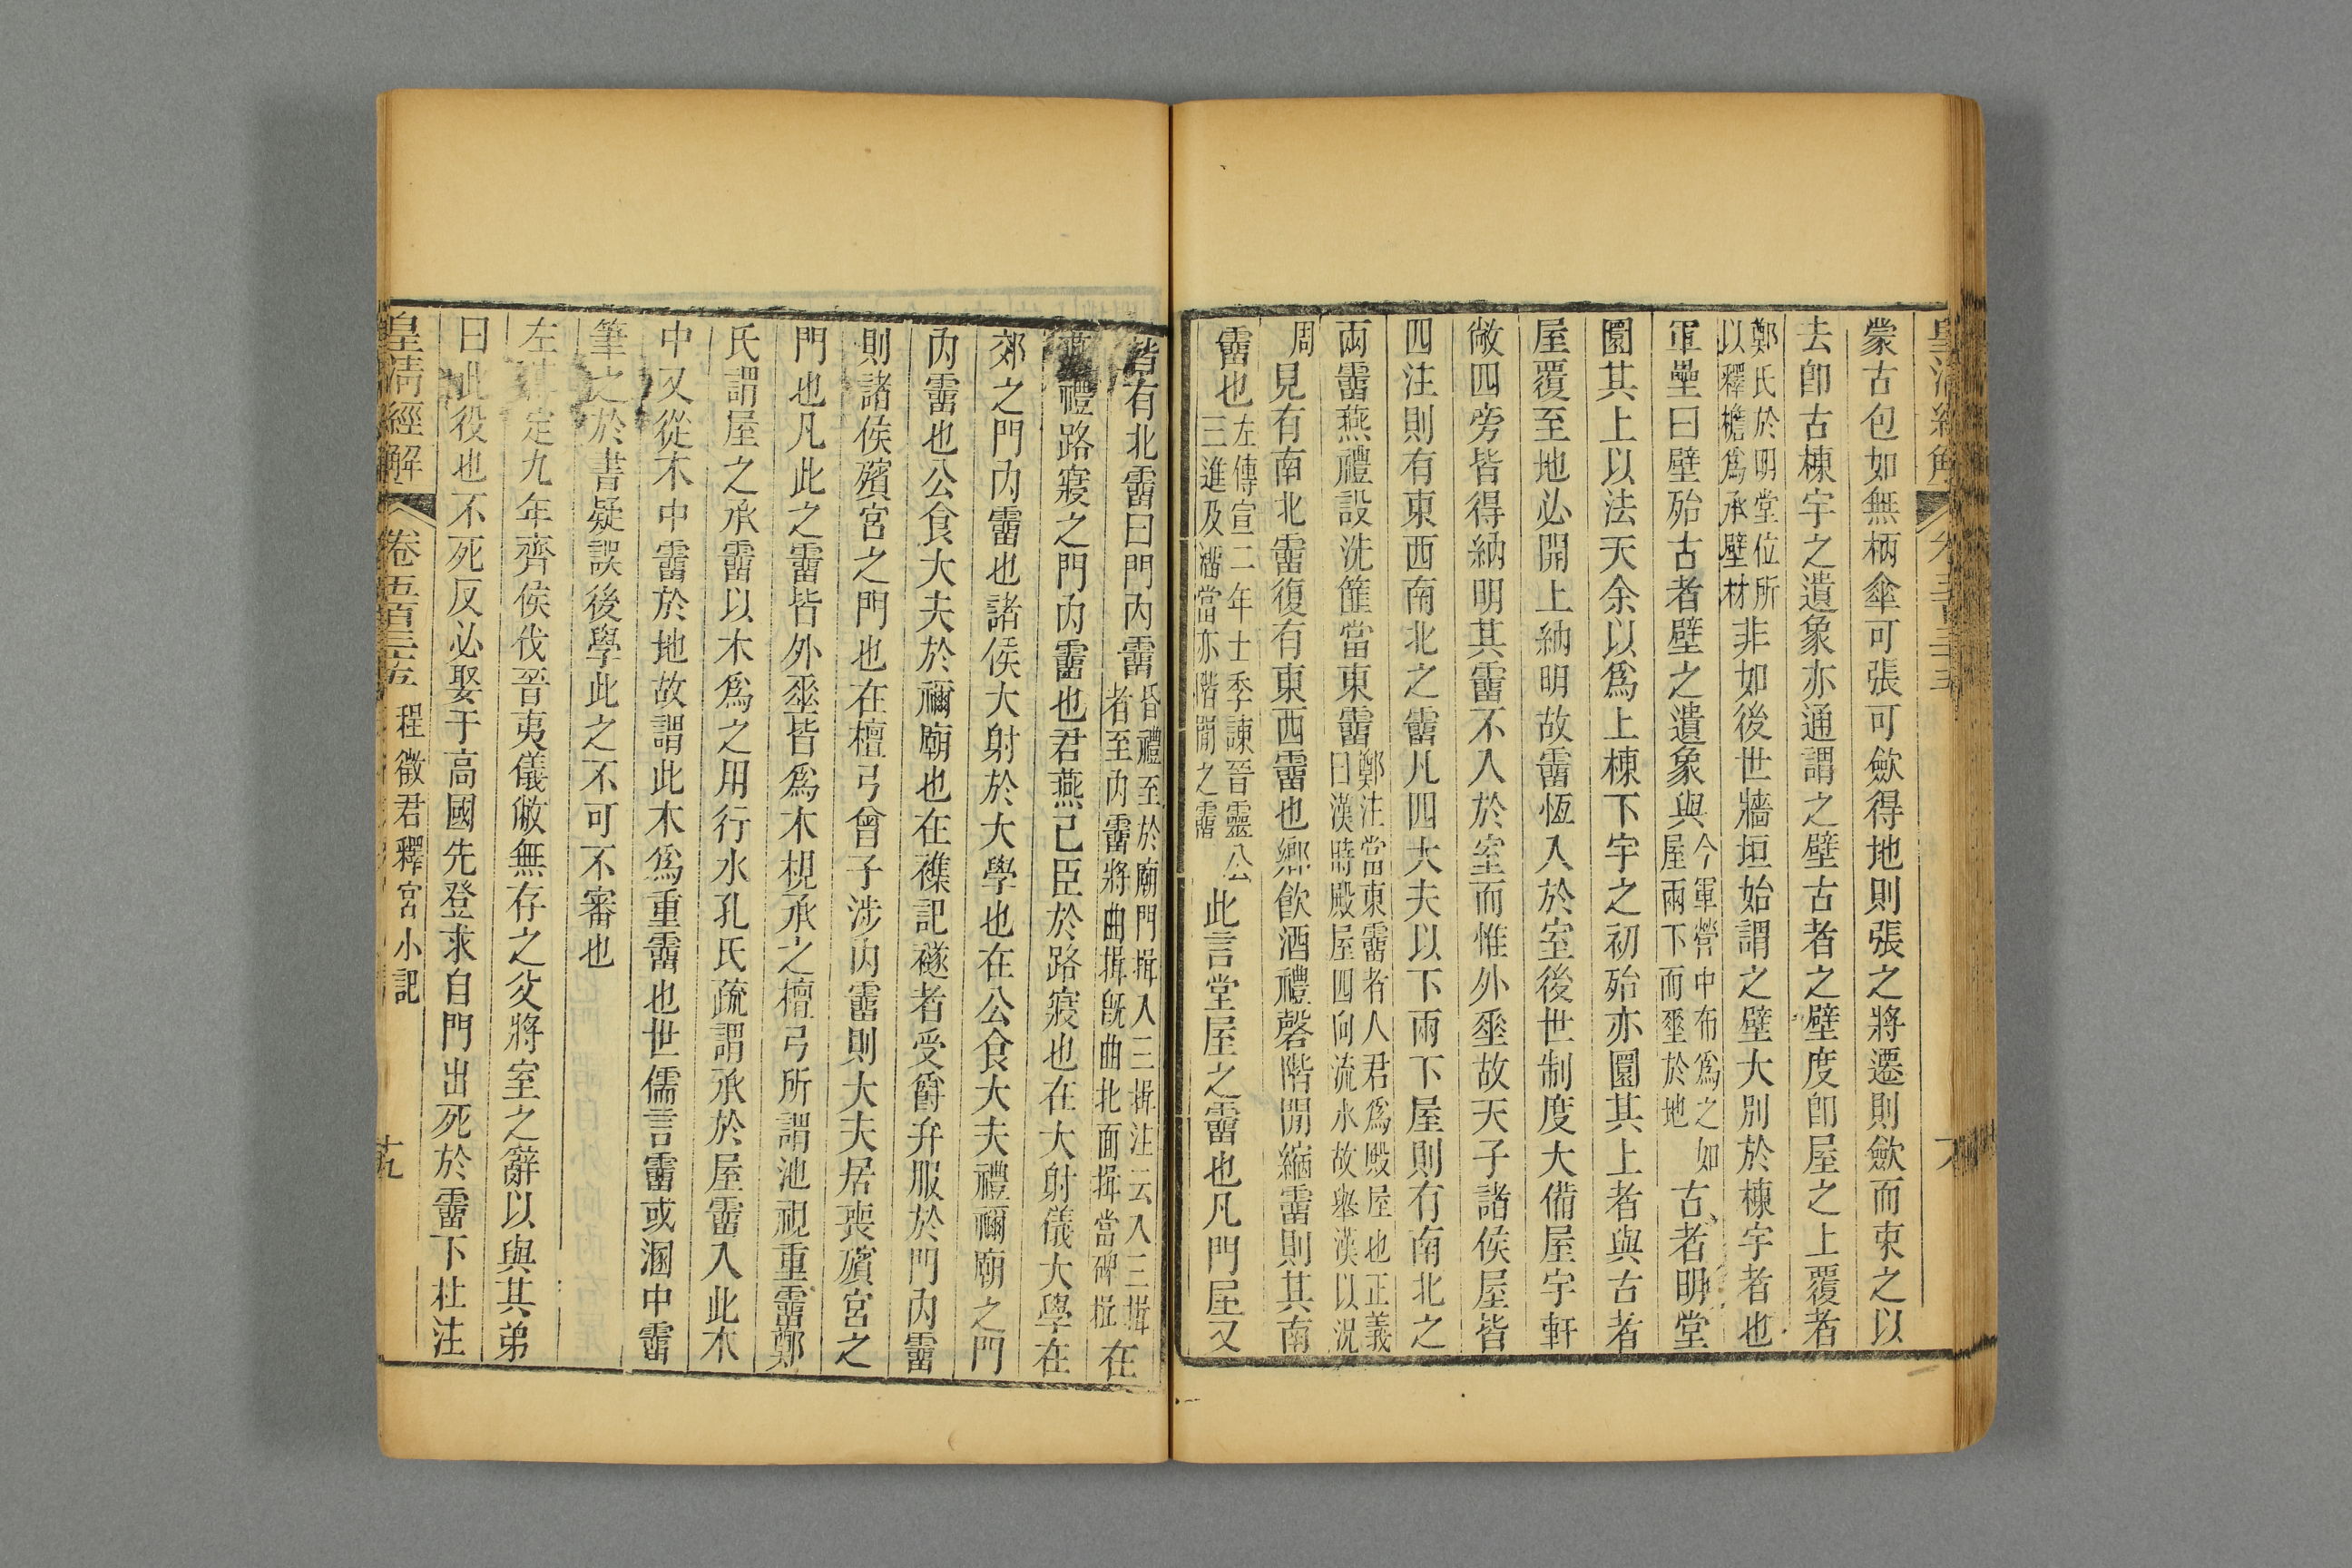 蒙古包如無柄傘可張可歛得地則張之將遷則歛而束之以
去卽古棟宇之遺象亦通謂之壁古者之壁度卽屋之上覆者
鄭氏於明堂位所
以釋檐爲承壁材
非如後世牆垣始謂之壁大別於棟宇者也
軍壘曰壁殆古者壁之遺象與
今軍營中布爲之如
屋兩下而埀於地
古者明堂
圜其上以法天余以爲上棟下宇之初殆亦圜其上者與古者
屋覆至地必開上納明故霤恆入於室後世制度大備屋宇軒
敞四旁皆得納明其霤不入於室而惟外埀故天子諸侯屋皆
四注則有東西南北之霤凡四大夫以下兩下屋則有南北之
兩霤燕禮設洗篚當東霤
鄭注當東霤者人君爲殿屋也正義
曰漢時殿屋四向流水故舉漢以況
周
見有南北霤復有東西霤也鄉飮酒禮磬階閒縮霤則其南
霤也
左傳宣二年士季諫晉靈公
三進及溜當亦階閒之霤
此言堂屋之霤也凡門屋又
皆有北霤曰門内霤
昏禮至於廟門揖入三揖注云入三揖
者至内霤將曲揖旣曲北面揖當碑揖
在
禮路寢之門内霤也君燕己臣於路寢也在大射儀大學在
郊之門内霤也諸侯大射於大學也在公食大夫禮禰廟之門
内霤也公食大夫於禰廟也在襍記襚者受爵弁服於門内霤
則諸侯殯宮之門也在檀弓曾子涉内霤則大夫居喪殯宮之
門也凡此之霤皆外埀皆爲木梘承之檀弓所謂池視重霤鄭
氏謂屋之承霤以木爲之用行水孔氏疏謂承於屋霤入此木
中又從木中霤於地故謂此木爲重霤也世儒言霤或溷中霤
筆之於書疑誤後學此之不可不審也
左定九年齊侯伐晉夷儀敝無存之父將室之辭以與其弟
曰此役也不死反必娶于高國先登求自門出死於霤下杜注
皇清經解
卷五百三十五
程徵君釋宮小記
十九